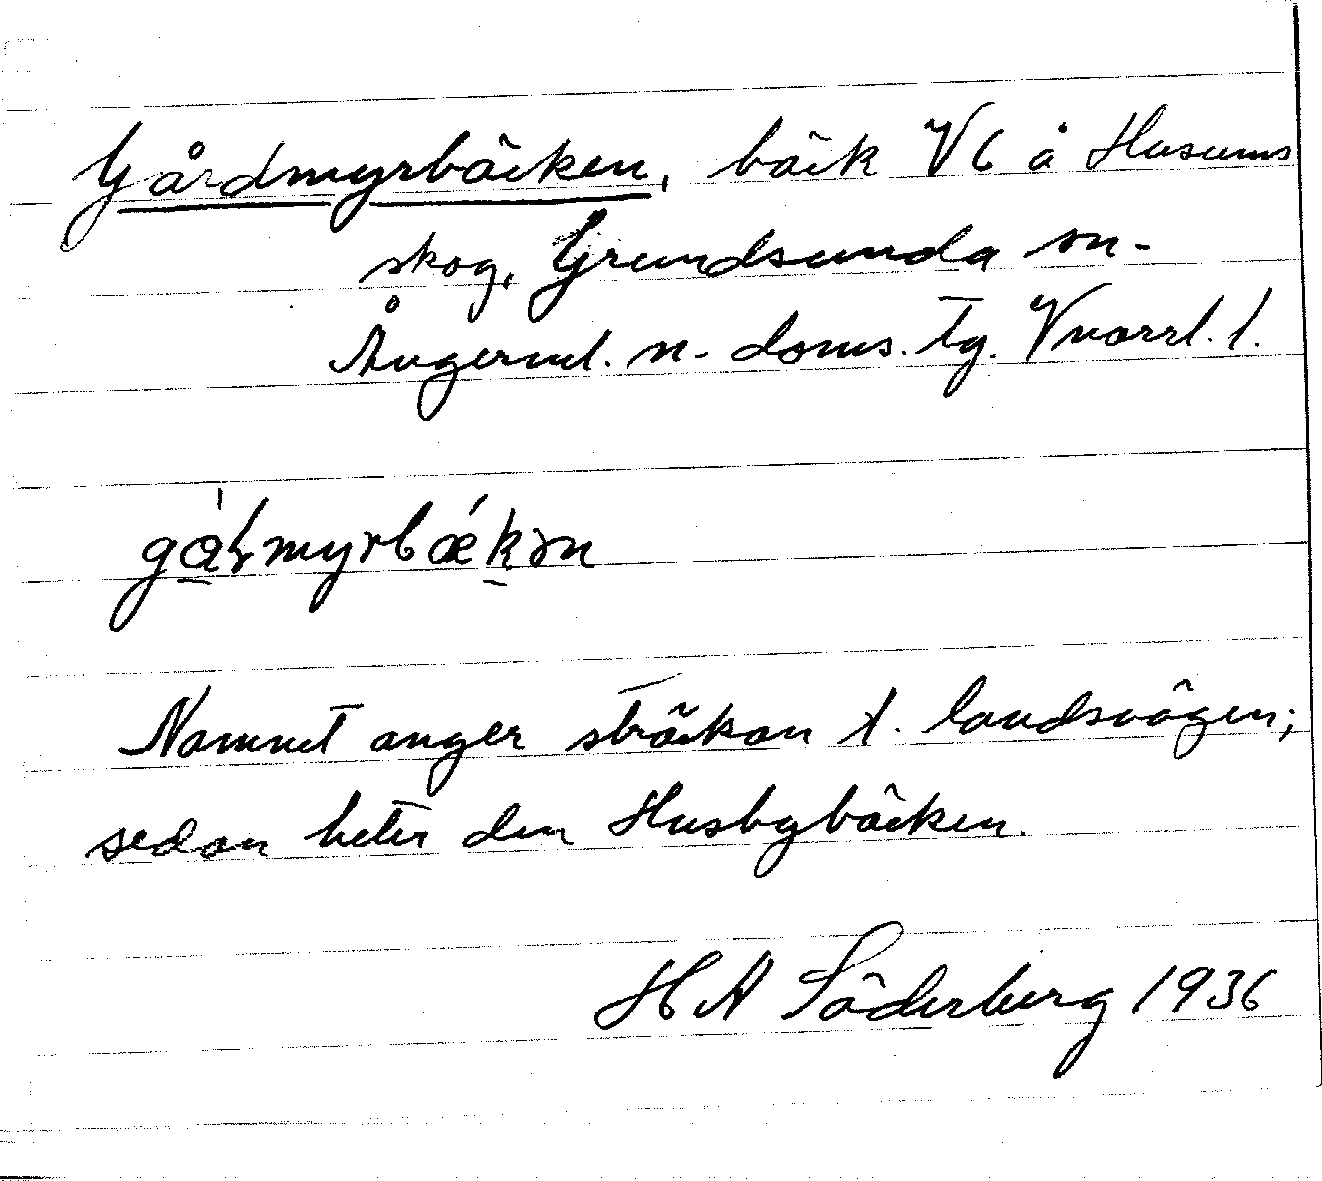 Gårdmyrbäcken, bäck V6 å Husums
skog, Grundsunda sn-
Ångerml. n. doms. tg. Vnorrl. l.
Namnet anger sträckan t. landsvägen;
sedan heter den Husbybäcken.
H A Söderberg 1936